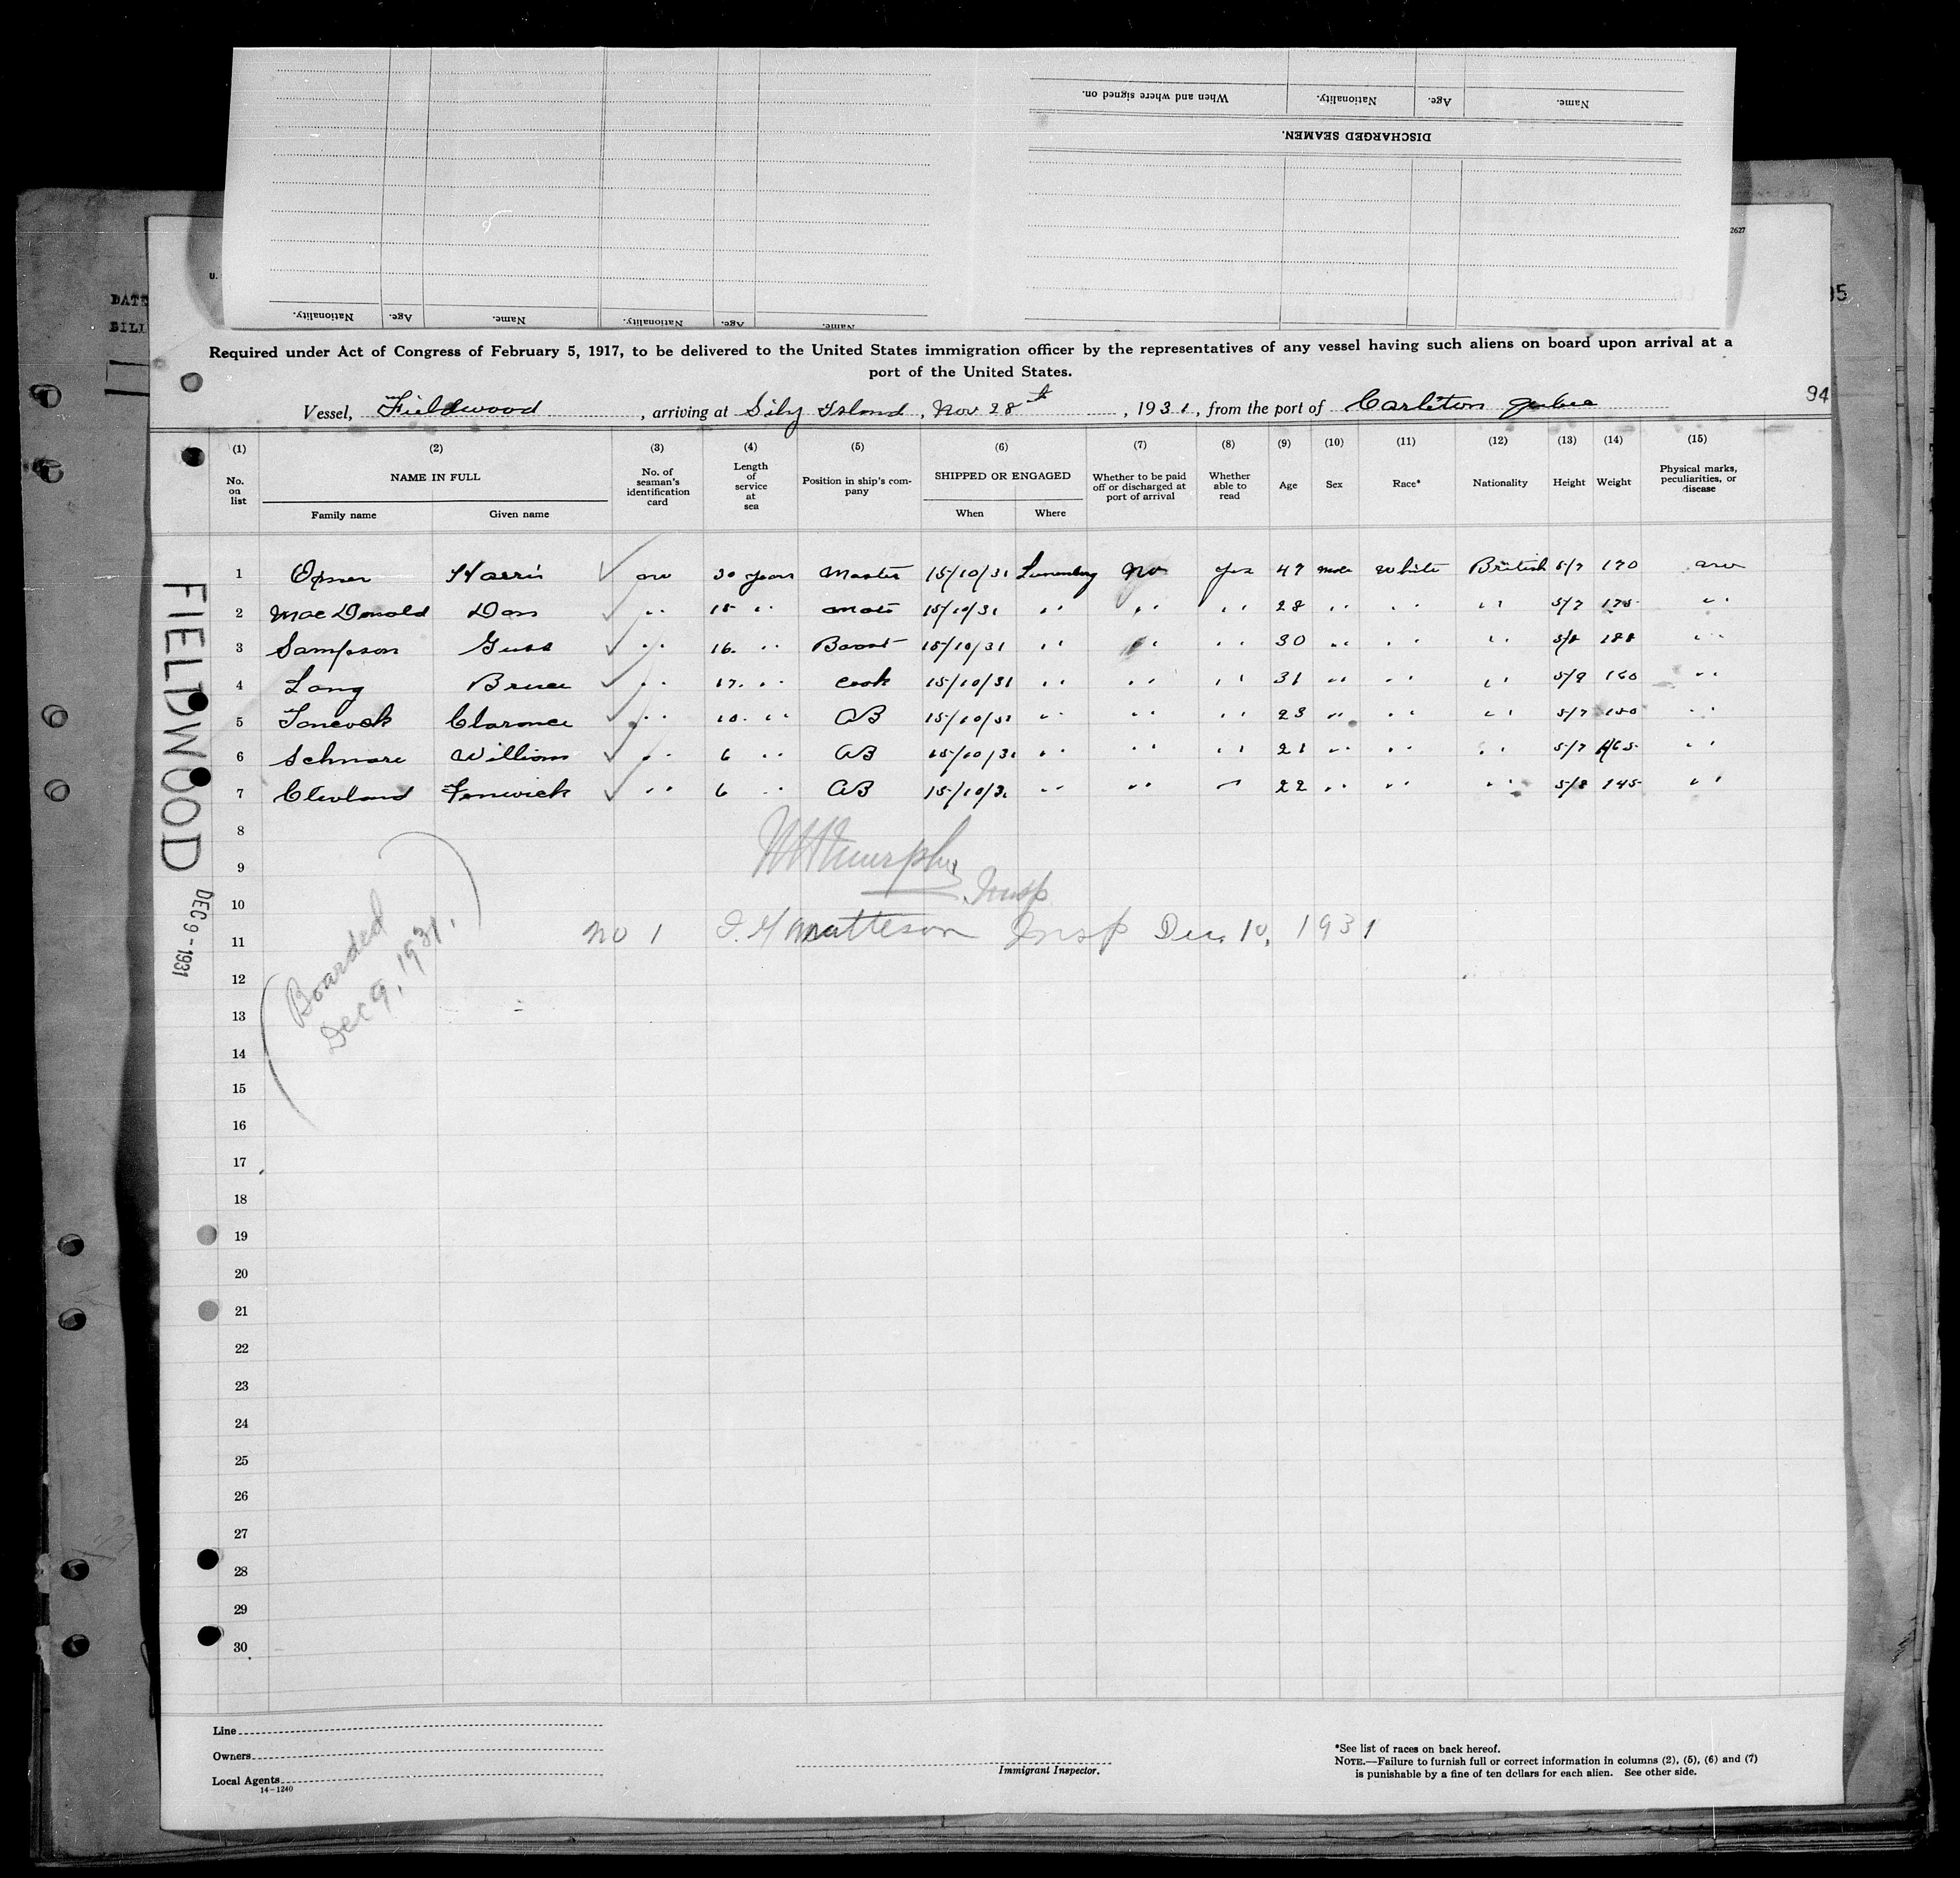 When and where signed on.
Nationality.
Age.
Name.
DISCHARGED SEAMEN.
Nationality.
Age.
Name.
Nationality.
Age.
Name.
2627
U.
DATE
BILL
95
Required under Act of Congress of February 5, 1917, to be delivered to the United States immigration officer by the representatives of any vessel having such aliens on board upon arrival at a
port of the United States.
94
Vessel, Fieldwood, arriving at City Island, Nov 28th, 1931, from the port of Carleton Quebec
(1) (2) (3) (4) (5) (6) (7) (8) (9) (10) (11) (12) (13) (14) (15)
No. on list
NAME IN FULL
Family name Given name
No. of seaman's identification card
Length of service at sea
Position in ship's company
SHIPPED OR ENGAGED
When Where
Whether to be paid off or discharged at port of arrival
Whether able to read
Age
Sex
Race*
Nationality
Height
Weight
Physical marks, peculiarities, or disease
1 Harris 30 years Master 15/10/31 Lunenburg No yes 47 Male White British 5/7 170
2 MacDonald Dan " 15 " Mate 15/10/31 " " " 28 " " " 5/7 175 "
3 Sampson Guss " 16 " 15/10/31 " " " 30 " " " 5/8 188 "
4 Long Bruce " 17 " Cook 15/10/31 " " " 31 " " " 5/9 160 "
5 Tancock Clarence " 10 " AB 15/10/31 " " " 23 " " " 5/7 150 "
6 Schnare William " 6 " AB 15/10/31 " " " 21 " " " 5/7 165 "
7 Clevland Fenwick " 6 " AB 15/10/31 " " " 22 " " " 5/8 145 "
8
9
10
11
12
13
14
15
16
17
18
19
20
21
22
23
24
25
26
27
28
29
30
FIELDWOOD
DEC 9 - 1931
Murphy
Insp
No 1 Matteson Insp Dec. 10, 1931
Boarded
Dec 9, 1931.
Line
Owners
Local Agents
14-1240
Immigrant Inspector.
*See list of races on back hereof.
NOTE.—Failure to furnish full or correct information in columns (2), (5), (6) and (7)
is punishable by a fine of ten dollars for each alien. See other side.